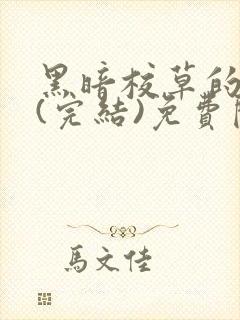 黑暗校草的
(完結)免費閱
馬文佳